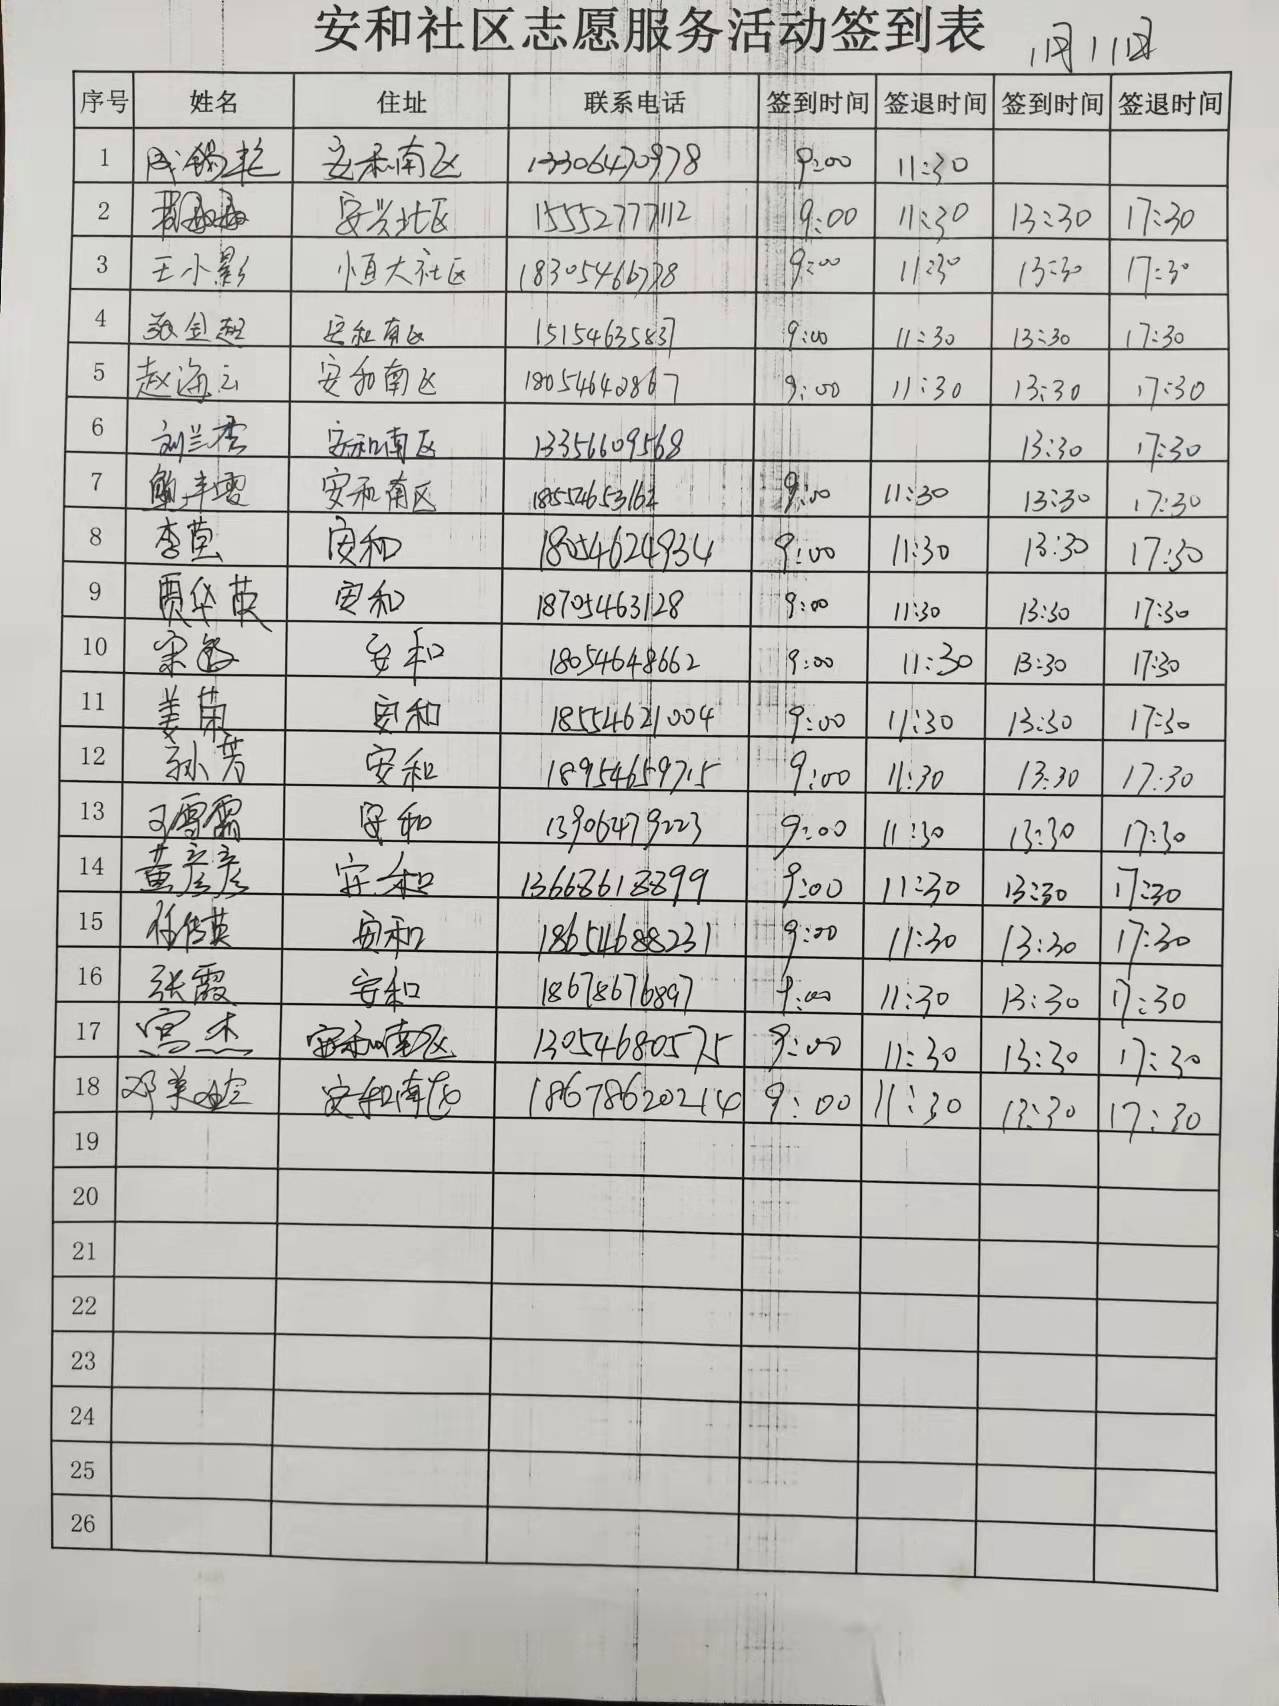 安和社区志愿服务活动签到表
1月11日
序号 姓名 住址 联系电话 签到时间 签退时间 签到时间 签退时间
1 安和南区 13306470978 9:00 11:30
2 安兴北区 15552777112 9:00 11:30 13:30 17:30
3 王小影 恒大社区 18305466778 9:00 11:30 13:30 17:30
4 张金超 安和南区 15154635837 9:00 11:30 13:30 17:30
5 赵海云 安和南区 18054642867 9:00 11:30 13:30 17:30
6 刘兰香 安和南区 13356609568 13:30 17:30
7 安和南区 18554653162 9:00 11:30 13:30 17:30
8 李莹 安和 18054624934 9:00 11:30 13:30 17:30
9 贾华英 安和 18705463128 9:00 11:30 13:30 17:30
10 宋敏 安和 18054648662 9:00 11:30 13:30 17:30
11 姜菊 安和 18554621004 9:00 11:30 13:30 17:30
12 孙芳 安和 18954659715 9:00 11:30 13:30 17:30
13 安和 13906479223 9:00 11:30 13:30 17:30
14 黄彦彦 安和 13668618899 9:00 11:30 13:30 17:30
15 任传英 安和 18654688231 9:00 11:30 13:30 17:30
16 张霞 安和 18678676897 9:00 11:30 13:30 17:30
17 宫杰 安和南区 13054680575 9:00 11:30 13:30 17:30
18 安和南区 18678620214 9:00 11:30 13:30 17:30
19
20
21
22
23
24
25
26